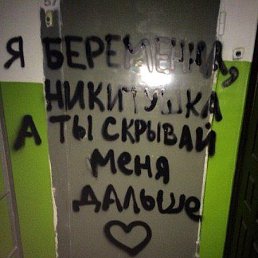 57
Я БЕРЕМЕННА,
НИКИТУШКА
А ТЫ СКРЫВАЙ
МЕНЯ
ДАЛЬШЕ